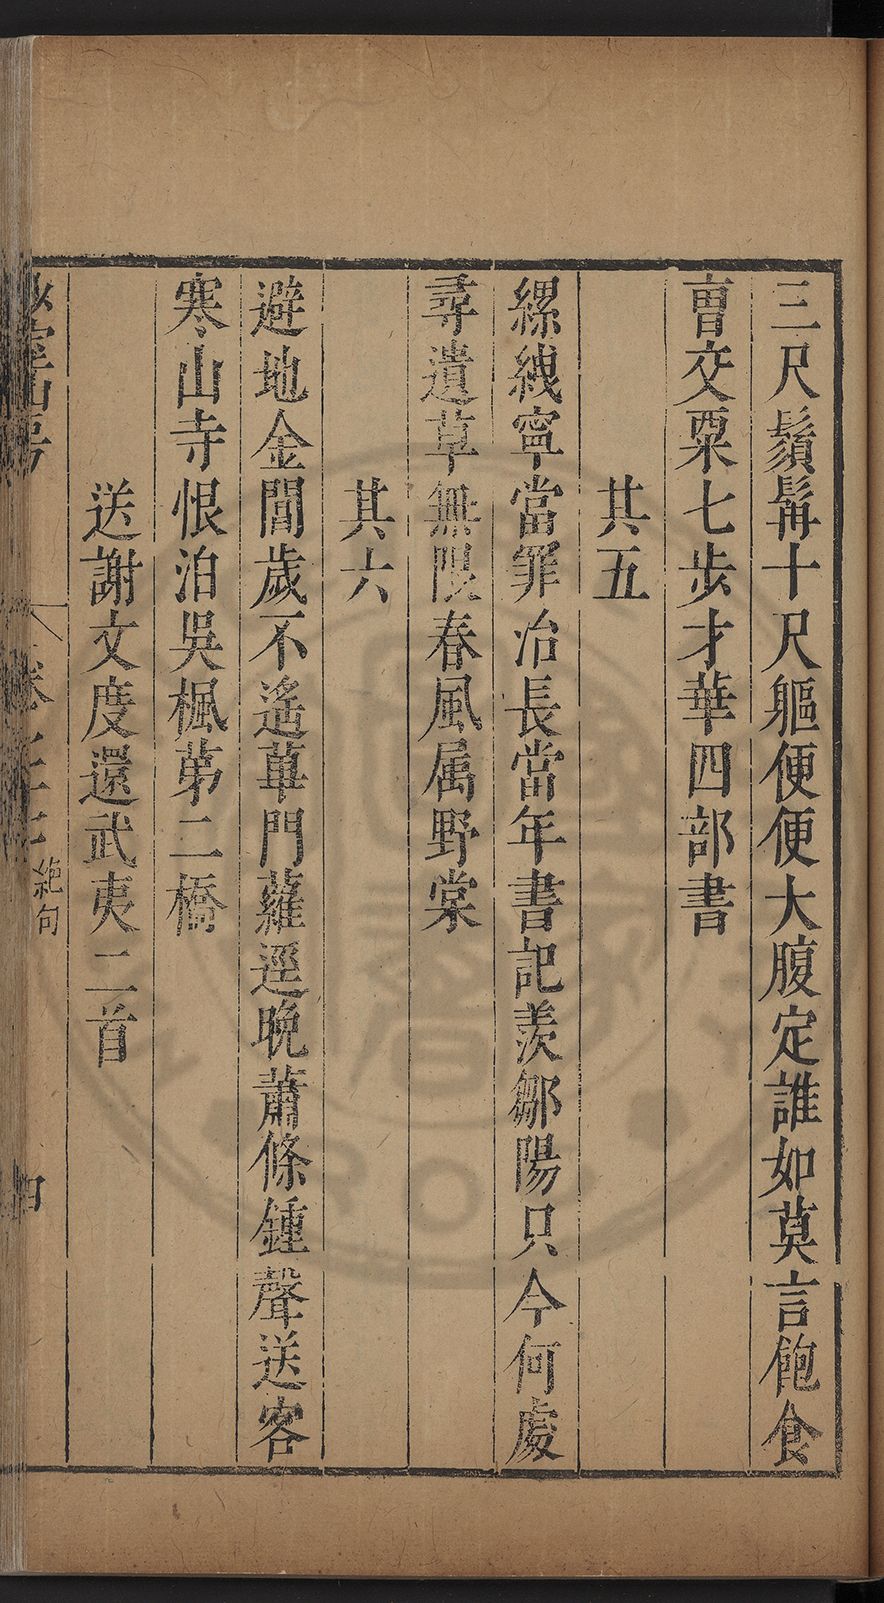 三尺鬚髯十尺軀便便大腹定誰如莫言飽食
曹交粟七步才華四部書
其五
縲絏寧當罪冶長當年書記羨鄒陽只今何處
尋遺草無限春風属野棠
其六
避地金閶歲不遙蓽門蘿逕晚蕭條鍾聲送客
寒山寺恨泊吳楓第二橋
送謝文度還武夷二首
山房
卷之
絕句
四